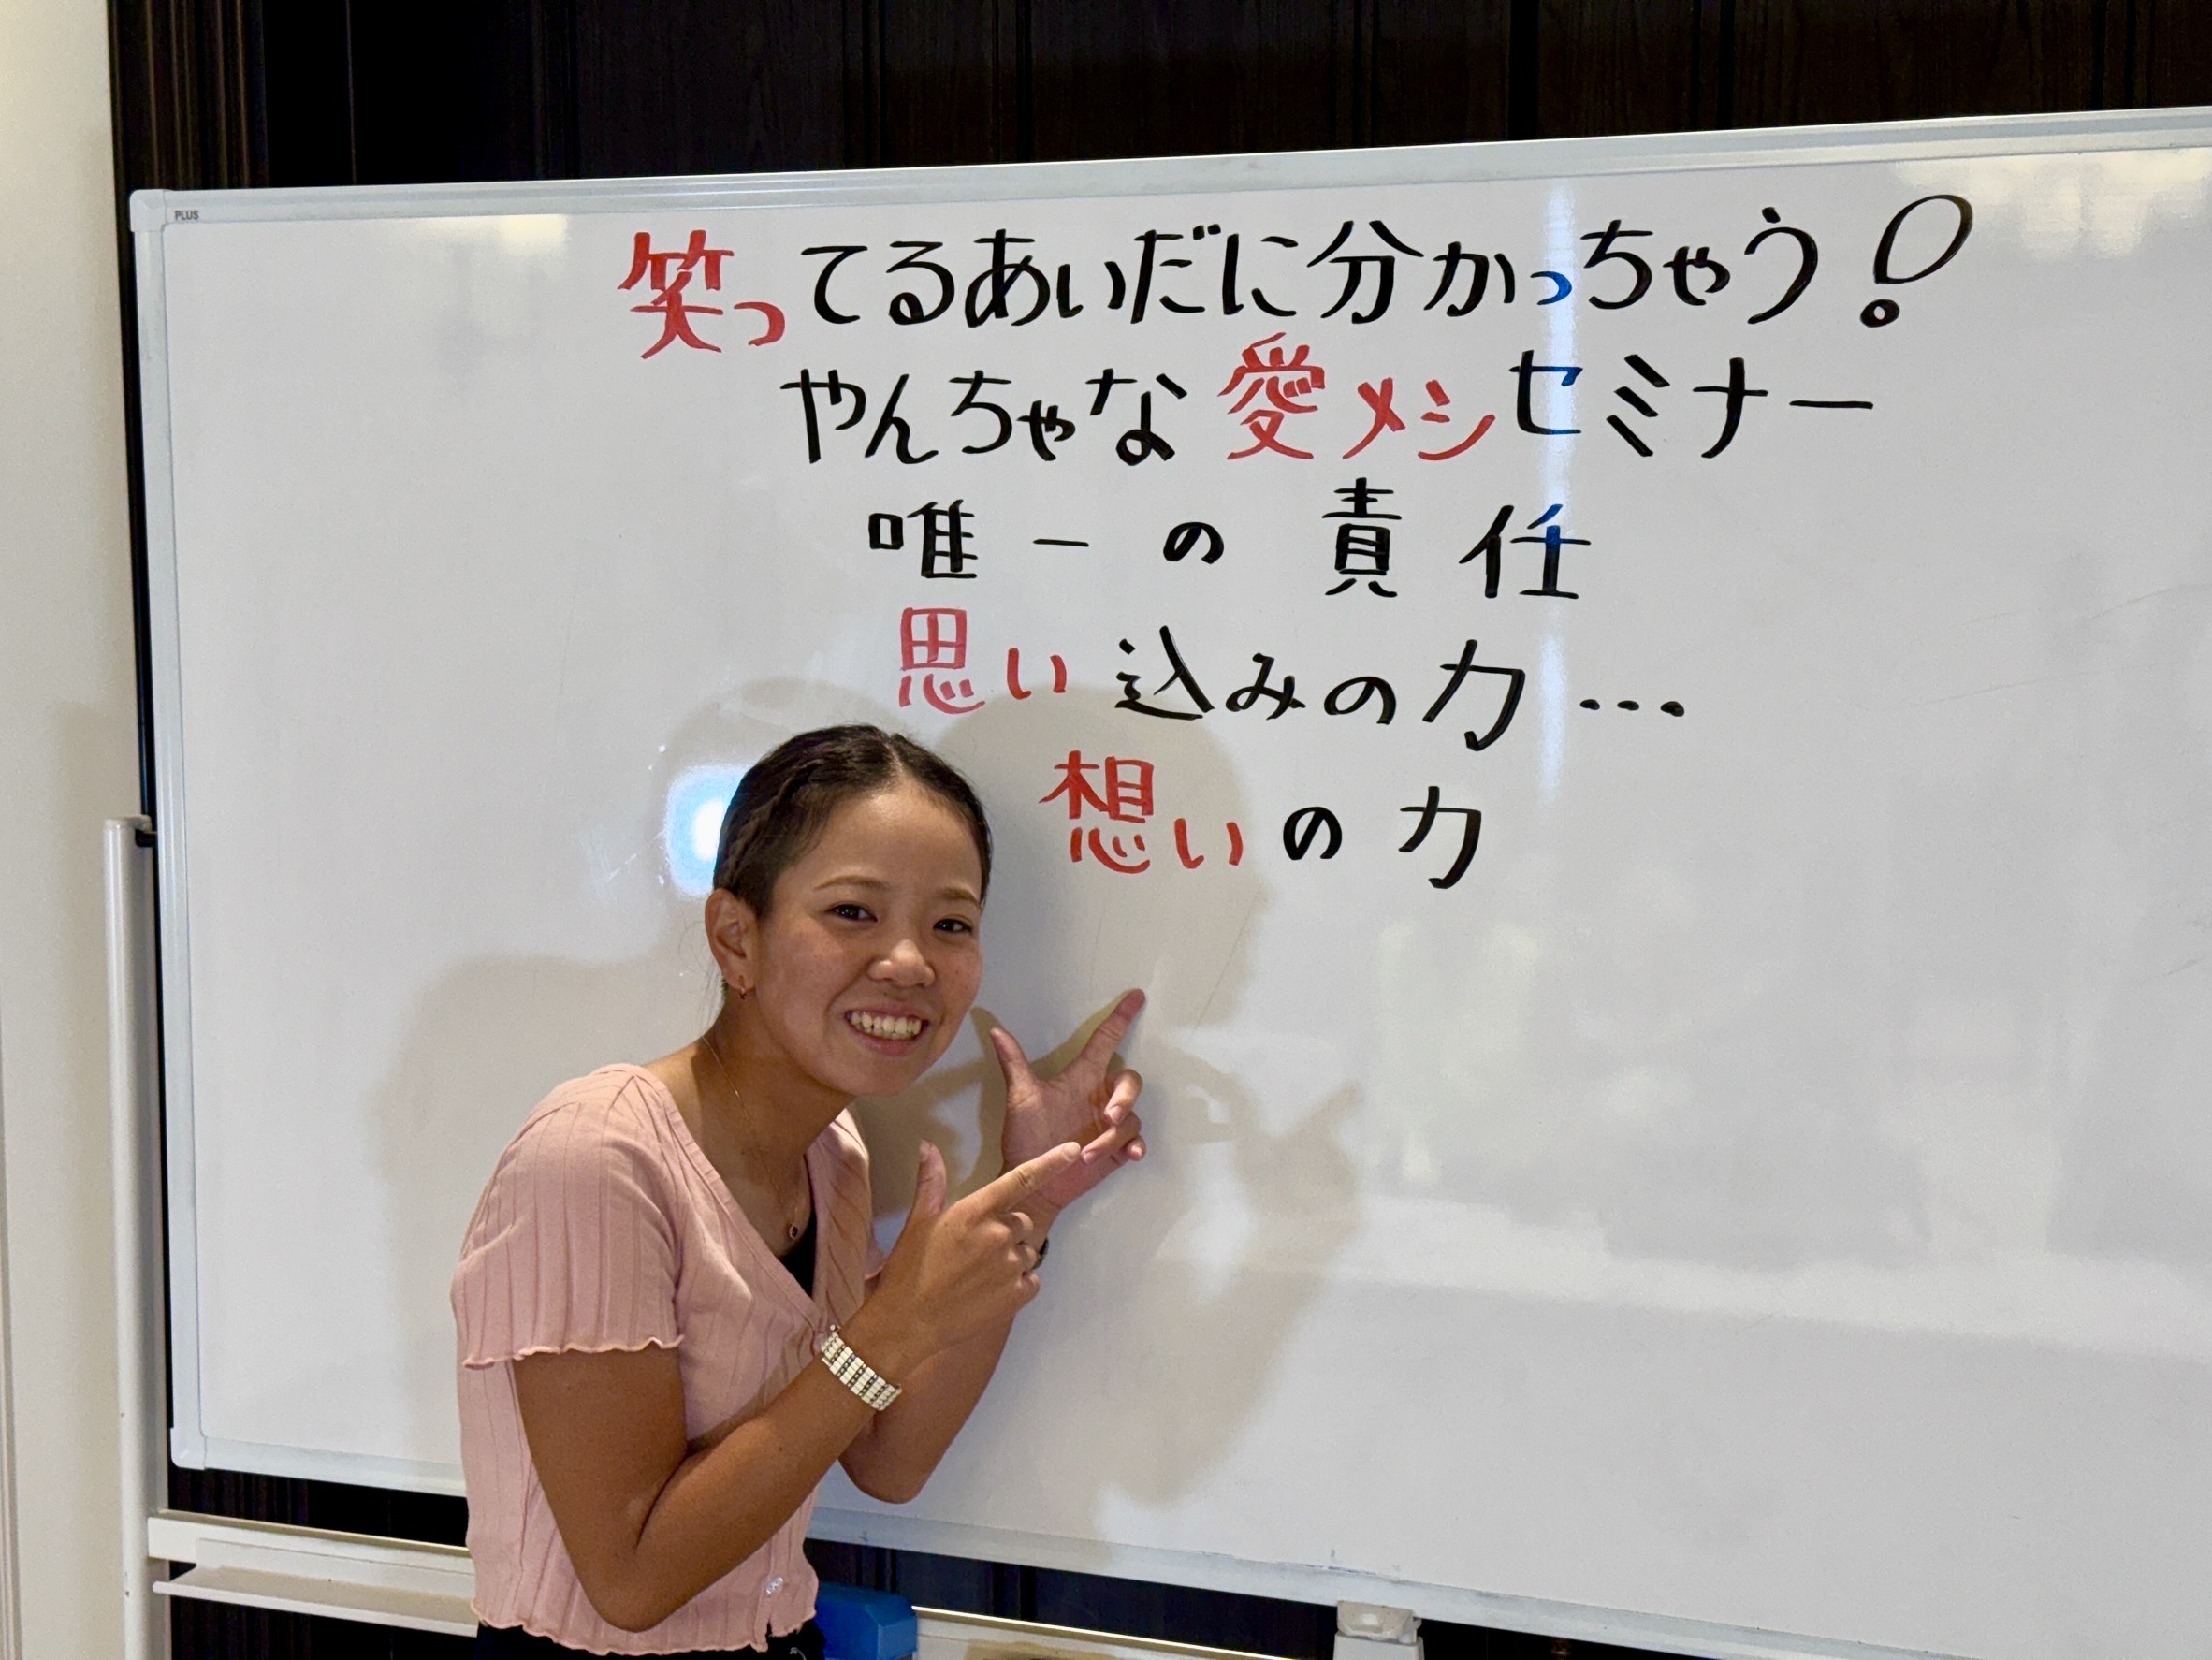 PLUS
笑ってるあいだに分かっちゃう!
やんちゃな愛メシセミナー
唯一の責任
思い込みの力…
想いの力